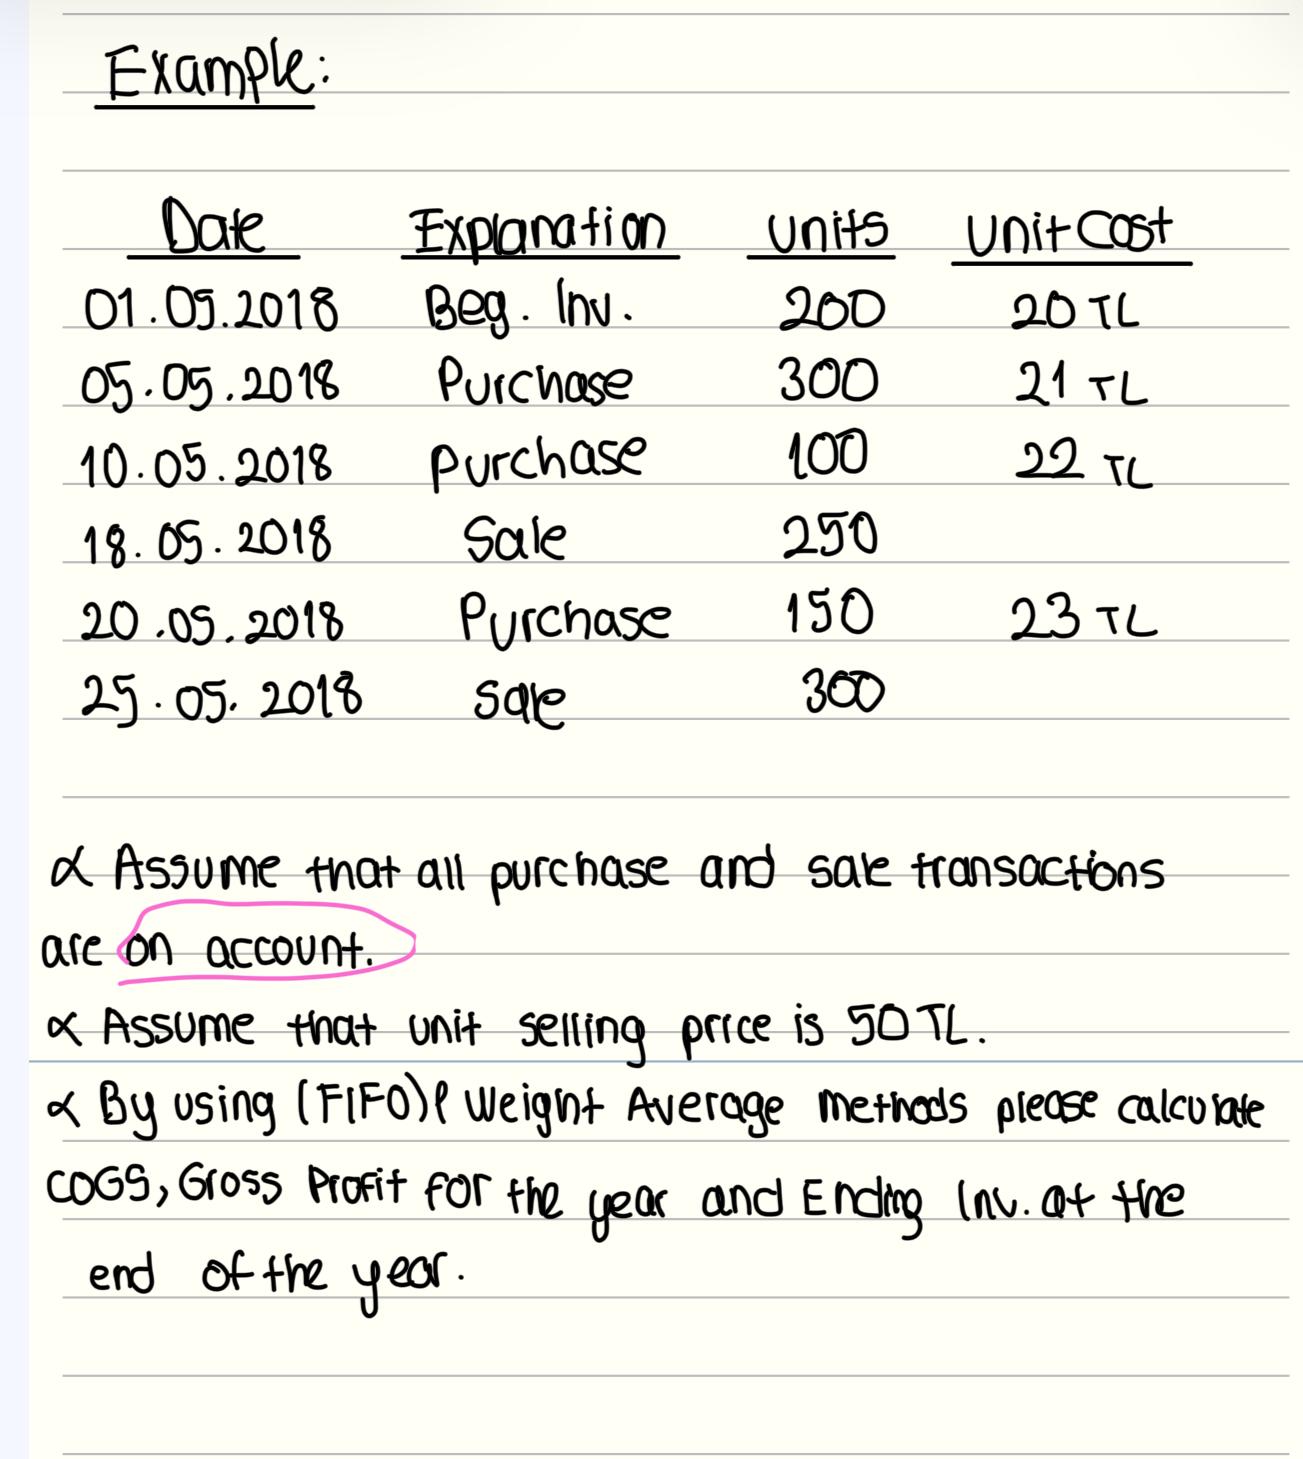 Example:
Date Explanation units unit Cost
01.05.2018 Beg. Inv. 200 20 TL
05.05.2018 Purchase 300 21 TL
10.05.2018 purchase 100 22 TL
18.05.2018 Sale 250
20.05.2018 Purchase 150 23 TL
25.05.2018 Sale 300
∝ Assume that all purchase and sale transactions
are on account.
∝ Assume that unit selling price is 50 TL.
∝ By using (FIFO) & Weight Average methods please calculate
COGS, Gross Profit for the year and Ending Inv. at the
end of the year.